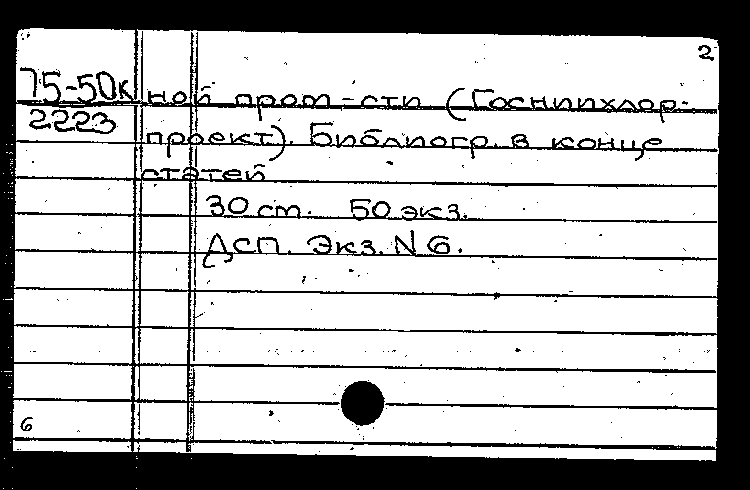 2
75-50к ной пром-сти (Госниихлор-
2223 проект). Библиогр. в конце
статей
30 ст. 50 экз.
ДСП. Экз. N 6.
6